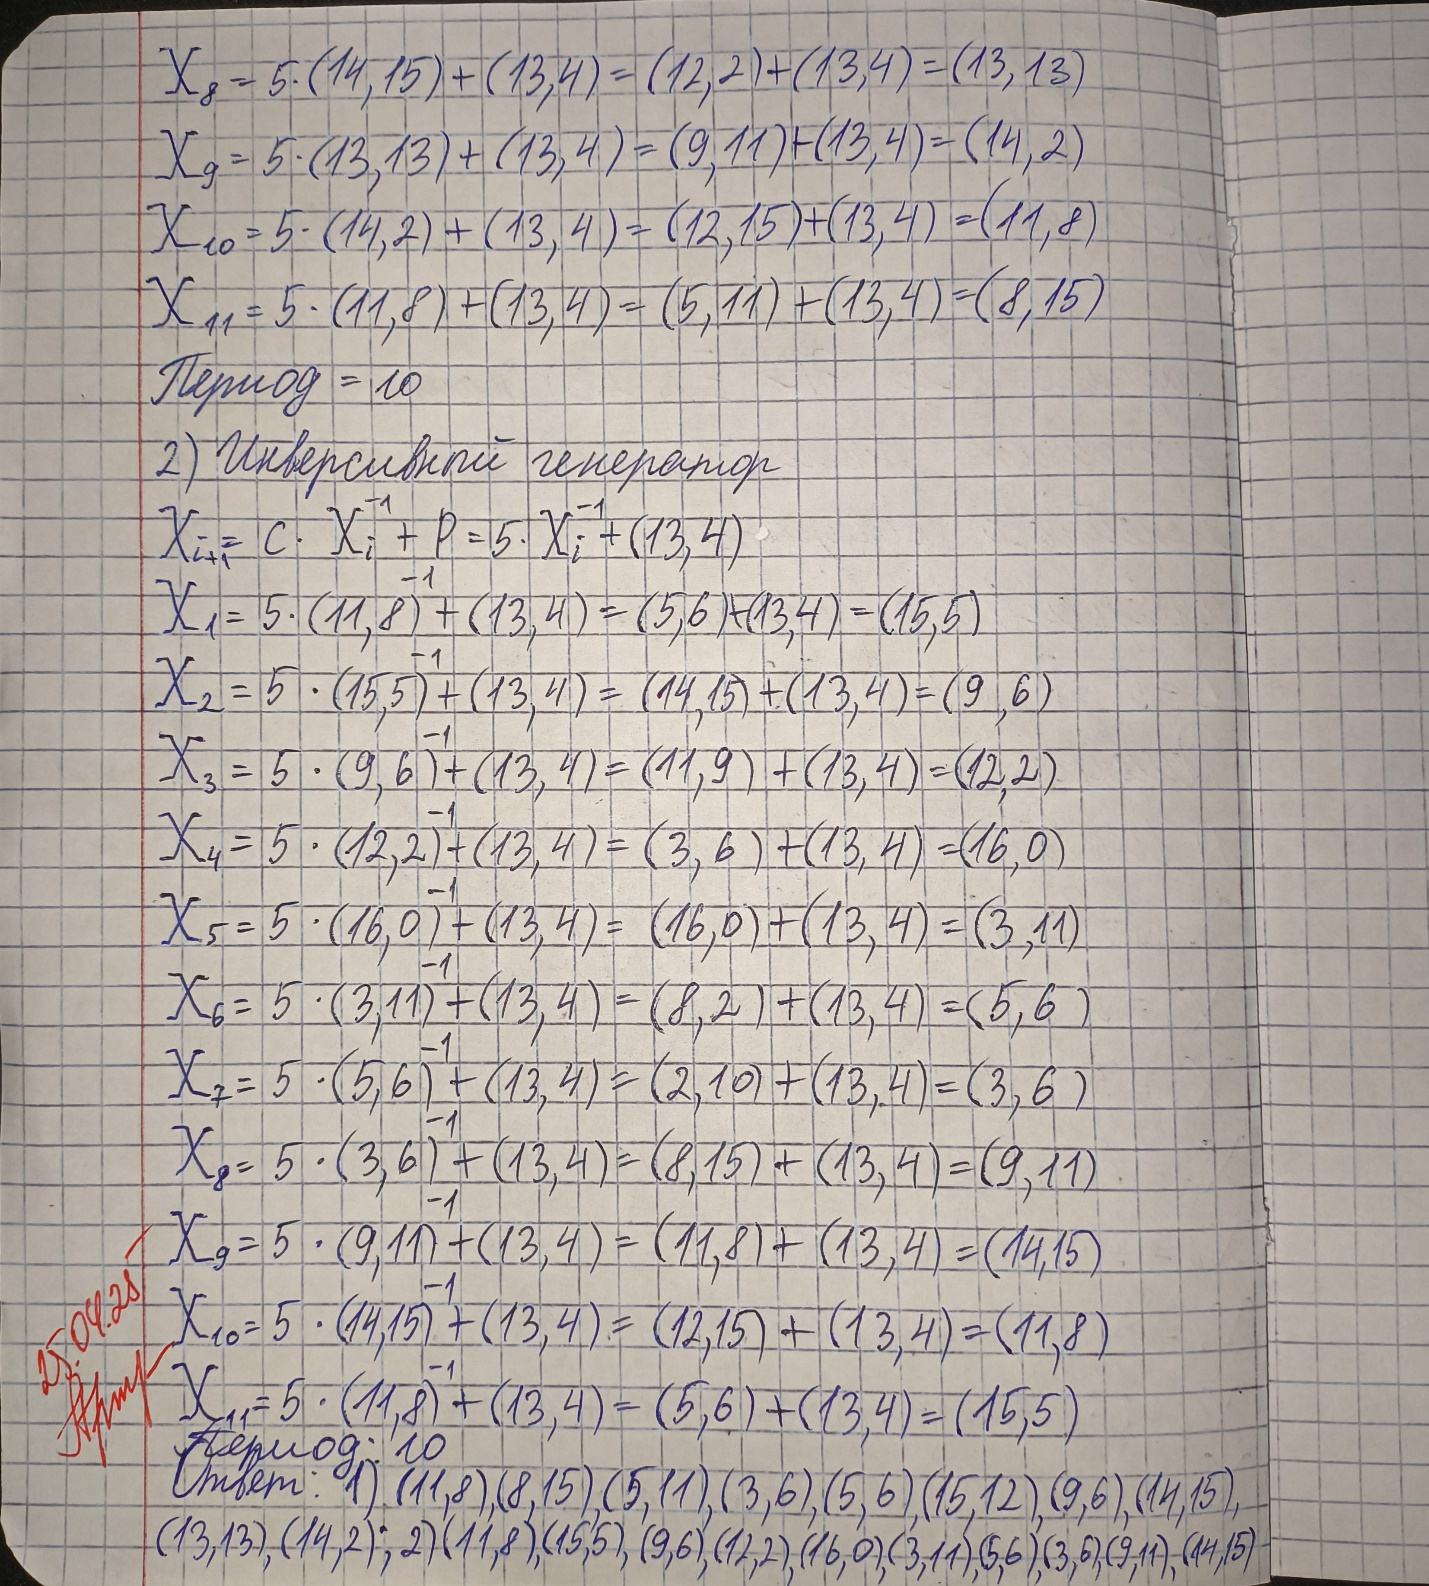 X₈ = 5·(14,15)+(13,4)=(12,2)+(13,4)=(13,13)
X₉ = 5·(13,13)+(13,4)=(9,11)+(13,4)=(14,2)
X₁₀ = 5·(14,2)+(13,4)=(12,15)+(13,4)=(11,8)
X₁₁ = 5·(11,8)+(13,4)=(5,11)+(13,4)=(8,15)
Период = 10
2) Инверсивный генератор
Xᵢ₊₁ = c·Xᵢ⁻¹ + P = 5·Xᵢ⁻¹+(13,4)
X₁ = 5·(11,8)⁻¹+(13,4)=(5,6)+(13,4)=(15,5)
X₂ = 5·(15,5)⁻¹+(13,4)=(14,15)+(13,4)=(9,6)
X₃ = 5·(9,6)⁻¹+(13,4)=(11,9)+(13,4)=(12,2)
X₄ = 5·(12,2)⁻¹+(13,4)=(3,6)+(13,4)=(16,0)
X₅ = 5·(16,0)⁻¹+(13,4)=(16,0)+(13,4)=(3,11)
X₆ = 5·(3,11)⁻¹+(13,4)=(8,2)+(13,4)=(5,6)
X₇ = 5·(5,6)⁻¹+(13,4)=(2,10)+(13,4)=(3,6)
X₈ = 5·(3,6)⁻¹+(13,4)=(8,15)+(13,4)=(9,11)
X₉ = 5·(9,11)⁻¹+(13,4)=(11,8)+(13,4)=(14,15)
X₁₀ = 5·(14,15)⁻¹+(13,4)=(12,15)+(13,4)=(11,8)
25.04.25
X₁₁ = 5·(11,8)⁻¹+(13,4)=(5,6)+(13,4)=(15,5)
Период: 10
Ответ: 1) (11,8),(8,15),(5,11),(3,6),(5,6),(15,12),(9,6),(14,15),
(13,13),(14,2); 2)(11,8),(15,5),(9,6),(12,2),(16,0),(3,11),(5,6),(3,6),(9,11),(14,15)